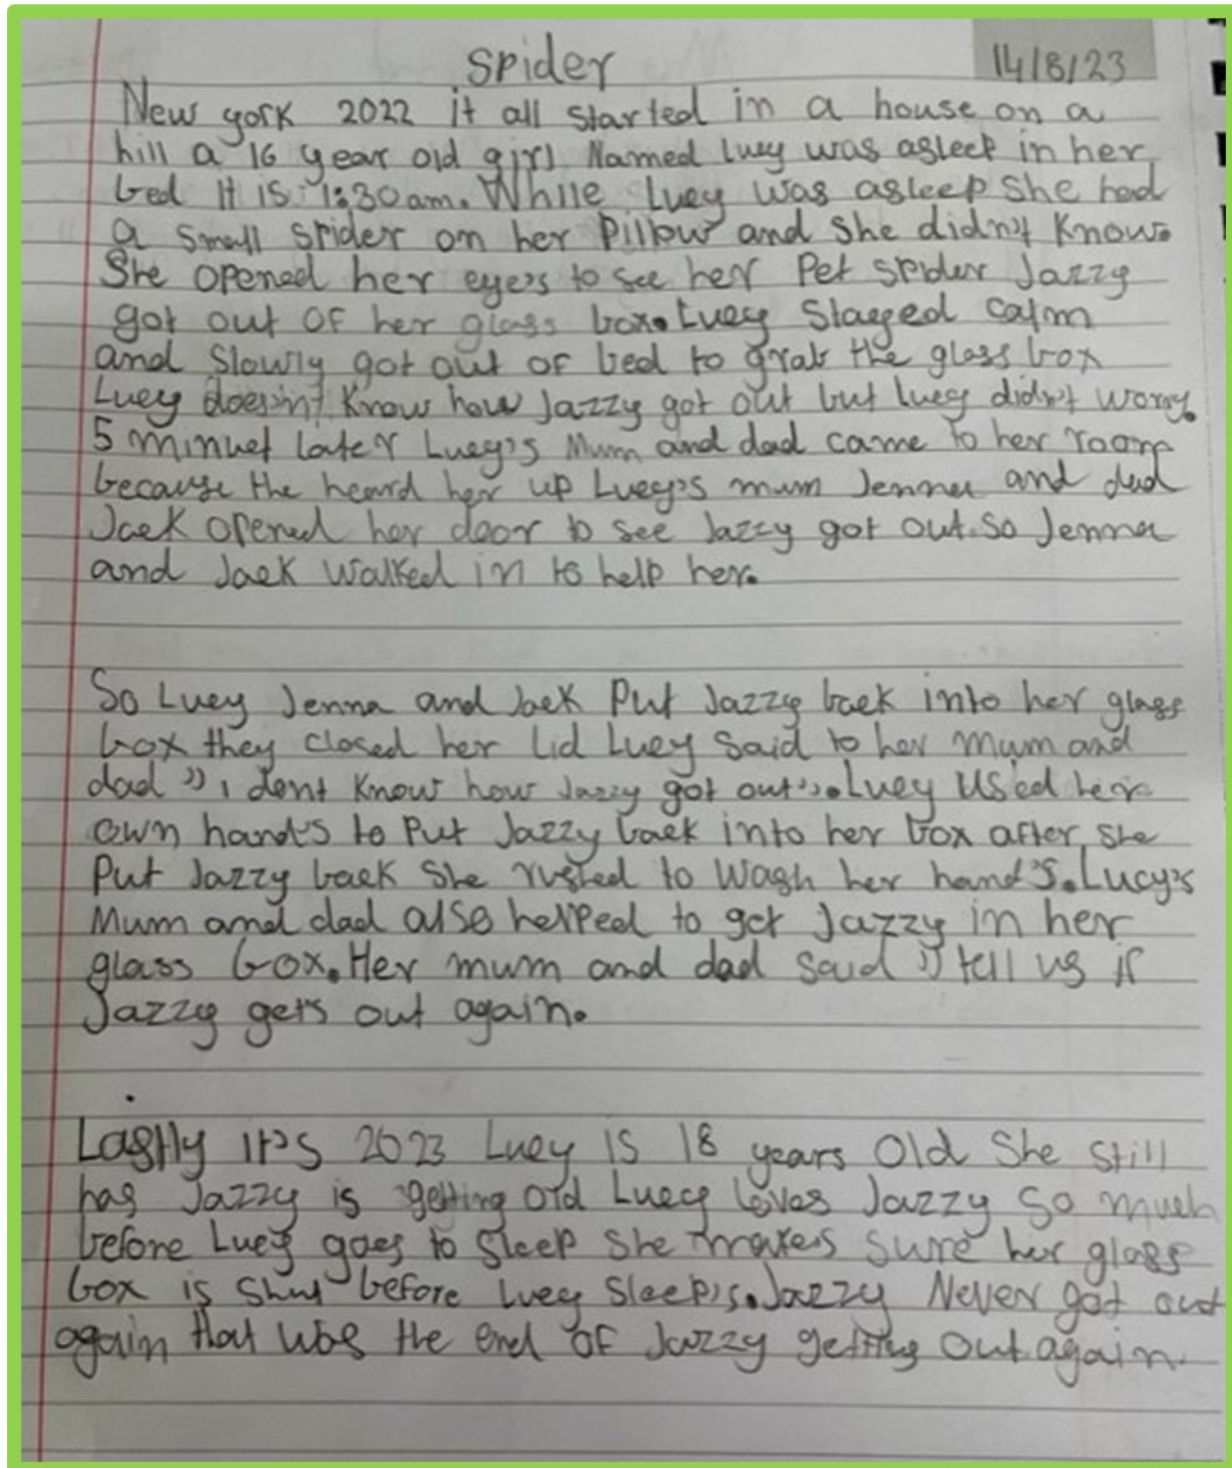 spider
14/8/23
New york 2022 it all started in a house on a
hill a 16 year old girl Named Lucy was asleep in her
bed It is 1:30am. While Lucy was asleep she had
a small spider on her Pillow and she didn't know.
She opened her eye's to see her Pet spider Jazzy
got out of her glass box. Lucy stayed calm
and slowly got out of bed to grab the glass box
Lucy does'nt know how Jazzy got out but lucy didn't worry.
5 minuet later Lucy's Mum and dad came to her room
because the heard her up Lucy's mum Jenna and dad
Jack opened her door to see Jazzy got out. So Jenna
and Jack walked in to help her.
So Lucy Jenna and Jack Put Jazzy back into her glass
box they closed her lid Lucy said to her mum and
dad " i dont know how Jazzy got out". Lucy used her
own hand's to Put Jazzy back into her box after she
Put Jazzy back she rushed to wash her hand's. Lucy's
Mum and dad also helped to get Jazzy in her
glass box. Her mum and dad said " tell us if
Jazzy get's out again.
Lastly it's 2023 Lucy is 18 years old She still
has Jazzy is getting old Lucy loves Jazzy so much
before Lucy goes to sleep she makes sure her glass
box is shut before Lucy sleep's. Jazzy Never got out
again that was the end of Jazzy getting out again.